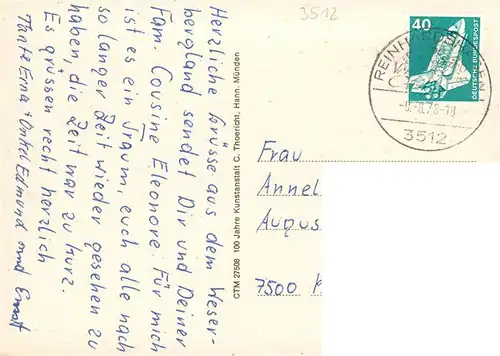 Herzliche Grüsse aus dem Weser-
bergland sendet Dir und Deiner
Fam. Cousine Eleonore. Für mich
ist es ein Traum, euch alle nach
so langer Zeit wieder gesehen zu
haben, die Zeit war zu kurz.
Es grüssen recht herzlich
Tante Erna + Onkel Edmund und
CTM 27508 100 Jahre Kunstanstalt C. Thoericht, Hann. Münden
3512
40
DEUTSCHE BUNDESPOST
REINHARDSHAGEN 1
3512
Frau
Annel
Augus
7500